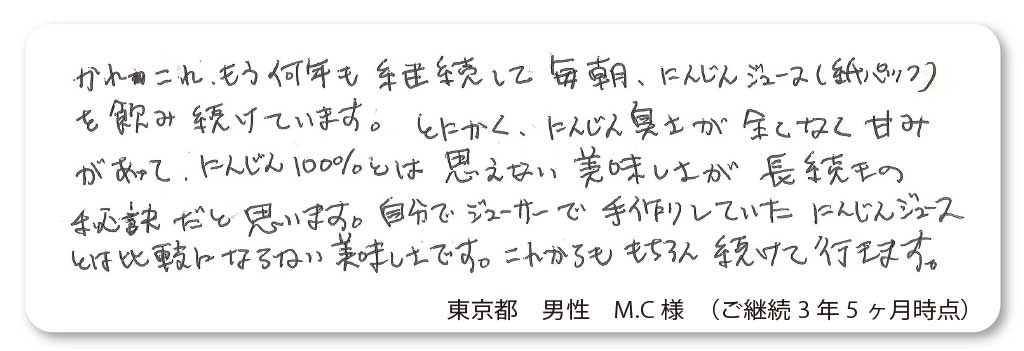 かれこれ、もう何年も継続して毎朝、にんじんジュース(紙パック)
を飲み続けています。とにかく、にんじん臭さが全くなく甘み
があって、にんじん100%とは思えない美味しさが長続きの
秘訣だと思います。自分でジューサーで手作りしていたにんじんジュース
とは比較にならない美味しさです。これからももちろん続けて行きます。
東京都 男性 M.C様 (ご継続3年5ヶ月時点)